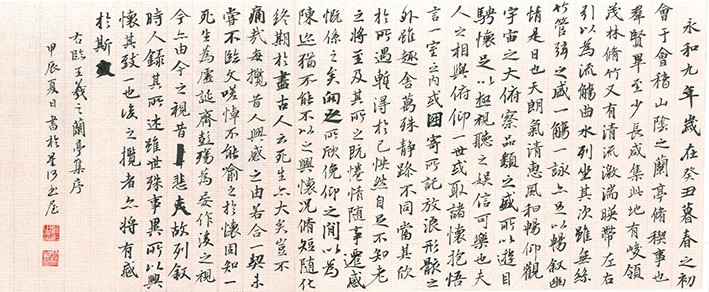 永和九年歲在癸丑暮春之初
會于會稽山陰之蘭亭脩稧事也
群賢畢至少長咸集此地有峻領
茂林脩竹又有清流激湍暎帶左右
引以為流觴曲水列坐其次雖無絲
竹管弦之盛一觴一詠亦足以暢叙幽
情是日也天朗氣清惠風和暢仰觀
宇宙之大俯察品類之盛所以遊目
騁懷足以極視聽之娛信可樂也夫
人之相與俯仰一世或取諸懷抱悟
言一室之內或因寄所託放浪形骸之
外雖趣舍萬殊靜躁不同當其欣
於所遇暫得於己怏然自足不知老
之將至及其所之既惓情隨事遷感
慨係之矣向之所欣俛仰之間以為
陳迹猶不能不以之興懷況脩短隨化
終期於盡古人云死生亦大矣豈不
痛哉每攬昔人興感之由若合一契未
嘗不臨文嗟悼不能喻之於懷固知一
死生為虛誕齊彭殤為妄作後之視
今亦由今之視昔悲夫故列叙
時人錄其所述雖世殊事異所以興
懷其致一也後之攬者亦將有感
於斯文
右臨王羲之蘭亭集序
甲辰夏日書於